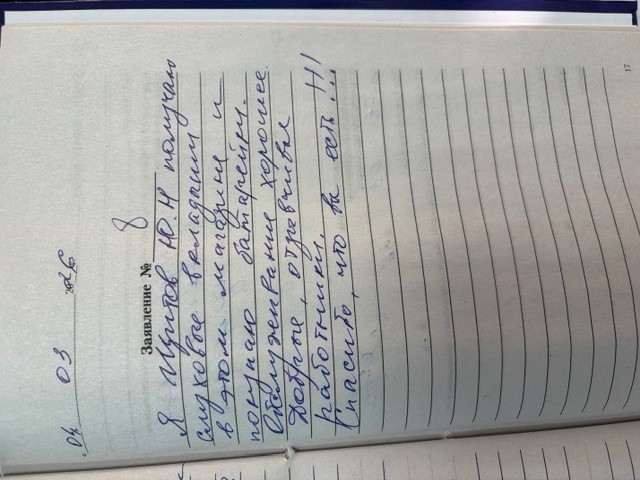 04 03 26
Заявление № 8
Я Ицитов Ю.Н получаю
слуховые вкладыши
в этом магазине и
покупаю батарейки.
Обслуживание хорошее.
Добрые, отзывчивые
работники, !!!
Спасибо, что вы есть...
17